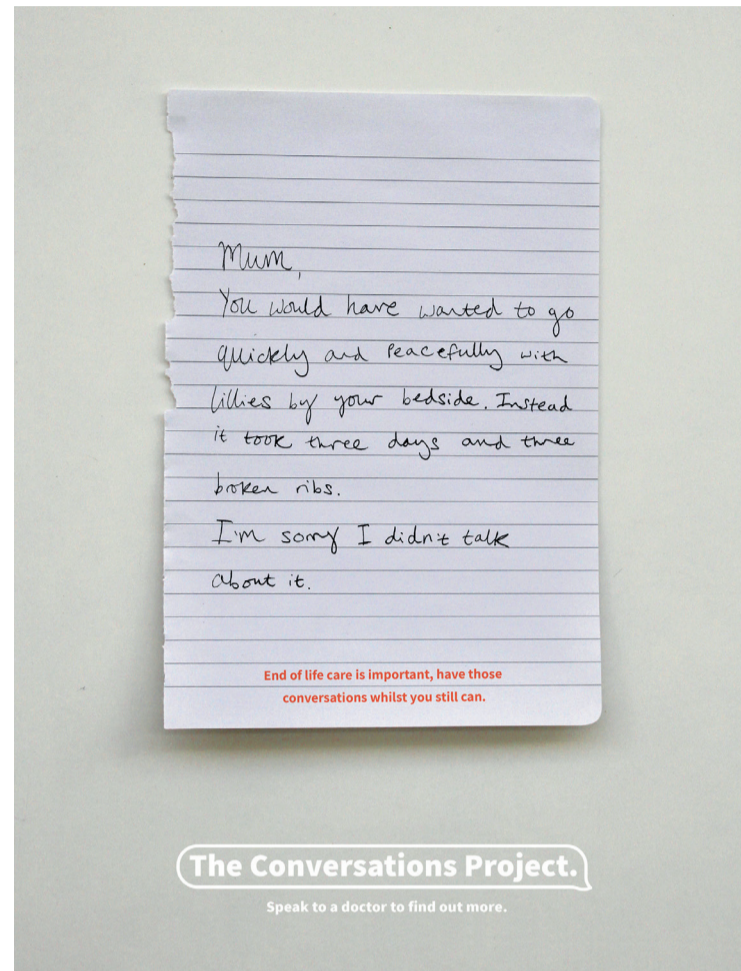 Mum,
You would have wanted to go
quickly and Peacefully with
lillies by your bedside. Instead
it took three days and three
broken ribs.
I'm sorry I didn't talk
about it.
End of life care is important, have those
conversations whilst you still can.
The Conversations Project.
Speak to a doctor to find out more.